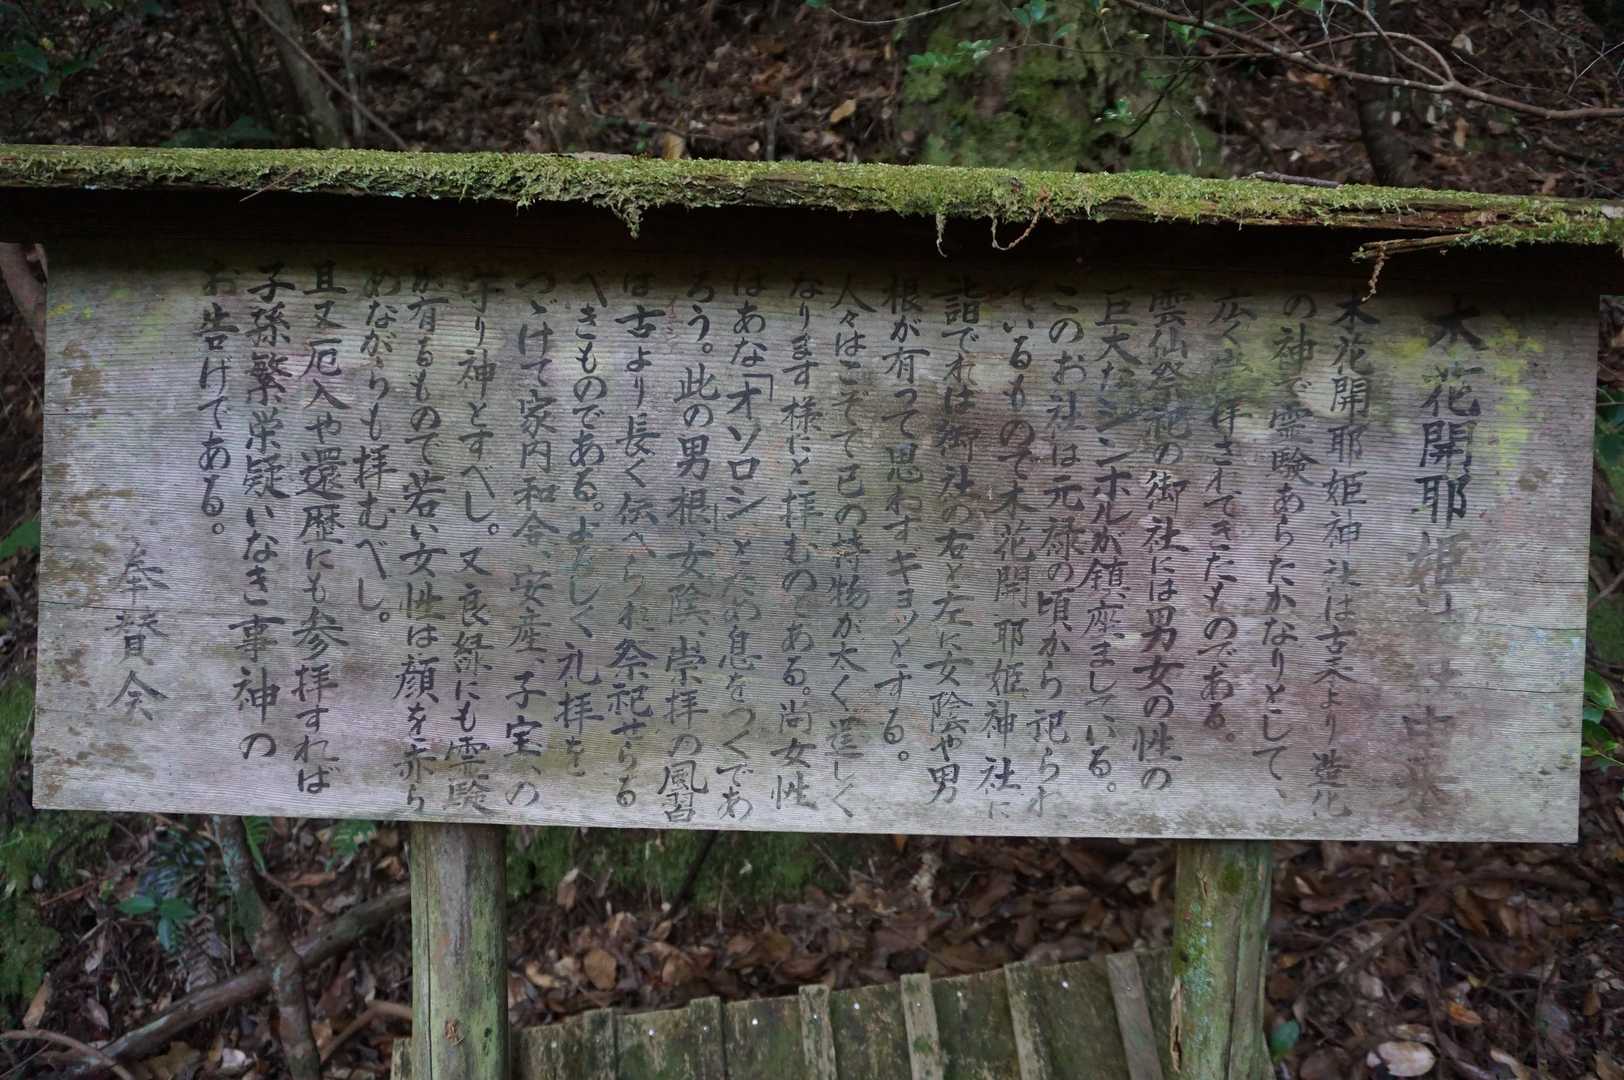 木花開耶姫
木花開耶姫神社は古来より造化
の神で霊験あらたかなりとして、
広く 拝されてきたものである。
雲仙祭祀の御社には男女の性の
巨大なシンボルが鎮座ましている。
このお社は元禄の頃から祀られ
ているもので木花開耶姫神社に
詣でれば御社の右と左に女陰や男
根が有って思わずギョッとする。
人々はこぞって己の持物が太く逞しく
なります様にと拝むのである。尚女性
はあな「オソロシ」とため息をつくであ
ろう。此の男根、女陰、崇拝の風習
は古より長く伝へられ祭祀せらる
べきものである。よろしく礼拝を
つゞけて家内和合、安産、子宝、の
守り神とすべし。又良縁にも霊験
が有るもので若い女性は顔を赤ら
めながらも拝むべし。
且又厄入や還歴にも参拝すれば
子孫繁栄疑いなき事神の
お告げである。
奉賛会